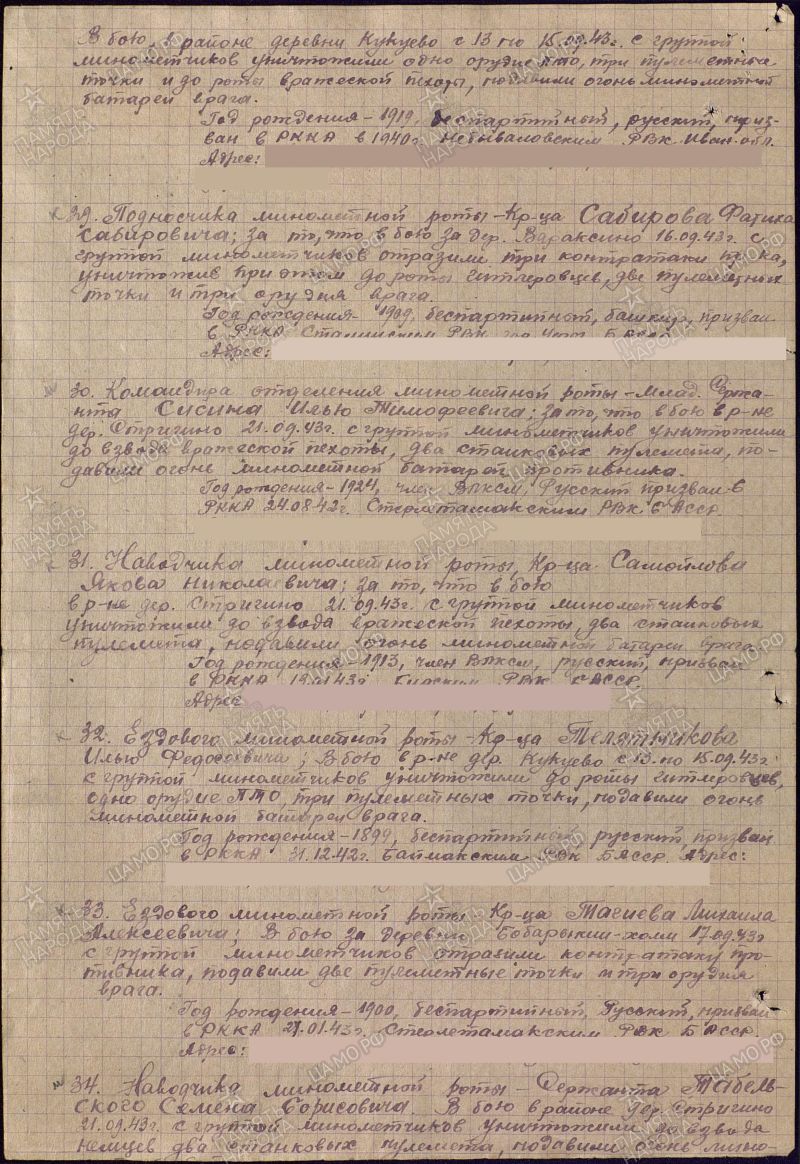 В бою в районе деревни Кукуево с 13 по 15.09.43г. с группой
миномётчиков уничтожили одно орудие ПТО, три пулеметные
точки и до роты вражеской пехоты, подавили огонь минометной
батареи врага.
Год рождения – 1919, беспартийный, русский, приз-
ван в РККА в 1940г. Небываловским РВК Иван. обл.
Адрес:
29. Подносчика минометной роты – Кр-ца Сабирова Фатиха
Сабировича; за то, что в бою за дер. Вараксино 16.09.43г. с
группой минометчиков отразили три контратаки
уничтожив при этом до роты гитлеровцев, две пулеметных
точки и три орудия врага.
Год рождения – 1909, беспартийный, башкир, призван
в РККА Сталинским РВК гор. БАССР
Адрес:
30. Командира отделения минометной роты – Млад. Сержа-
нта Сисина Илью Тимофеевича; за то, что в бою в р-не
дер. Стригино 21.09.43г. с группой минометчиков уничтожили
до взвода вражеской пехоты, два станковых пулемета, по-
давили огонь минометной батареи противника.
Год рождения – 1924, член ВЛКСМ, Русский призван в
РККА 24.08.42г. Стерлтамакским РВК БАССР
31. Наводчика минометной роты, Кр-ца Самойлова
Якова Николаевича; за то, что в бою
в р-не дер. Стригино 21.09.43г. с группой минометчиков
уничтожили до взвода вражеской пехоты, два станковых
пулемета, подавили огонь минометной батареи врага
Год рождения – 1913, член ВЛКСМ, русский, призван
в РККА Бирским РВК БАССР
Адрес
32. Ездового минометной роты – Кр-ца Телятникова
Илью Федосеевича; В бою в р-не дер. Кукуево с 13 по 15.09.43г.
с группой минометчиков уничтожили до роты гитлеровцев,
одно орудие ПТО, три пулеметных точки, подавили огонь
минометной батареи врага.
Год рождения – 1899, беспартийный, русский, призван
в РККА 31.12.42г. Баймакским РВК БАССР Адрес:
33. Ездового минометной роты Кр-ца Тагиева Михаила
Алексеевича; В бою за деревню Бобарыкин-холм 17.09.43г
с группой минометчиков отразили контратаку про-
тивника, подавили две пулеметные точки и три орудия
врага.
Год рождения – 1900, беспартийный, Русский, призван
в РККА 27.01.43г. Стерлетамакским РВК БАССР.
Адрес:
34. Наводчика минометной роты – Сержанта Табель-
ского Семена Борисовича. В бою в районе дер. Стригино
21.09.43г. с группой минометчиков уничтожили до взвода
немцев два станковых пулемета, подавили огонь мино-
ПАМЯТЬ НАРОДА
ЦАМО.РФ